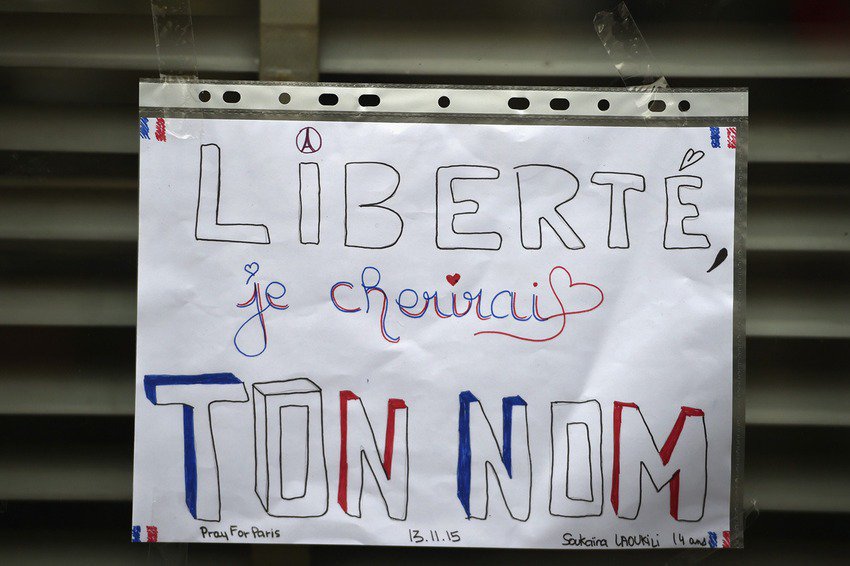 LIBERTÉ,
je cherirais
TON NOM
Pray For Paris 13.11.15 Soukaïna LAOUKILI 14 ans